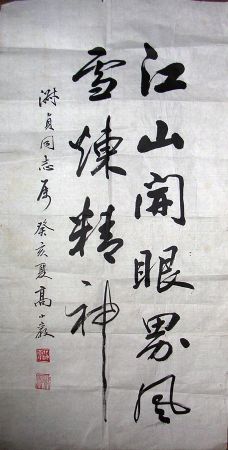 江山開眼界風
雪煉精神
淑貞同志屬 癸亥夏高小巖